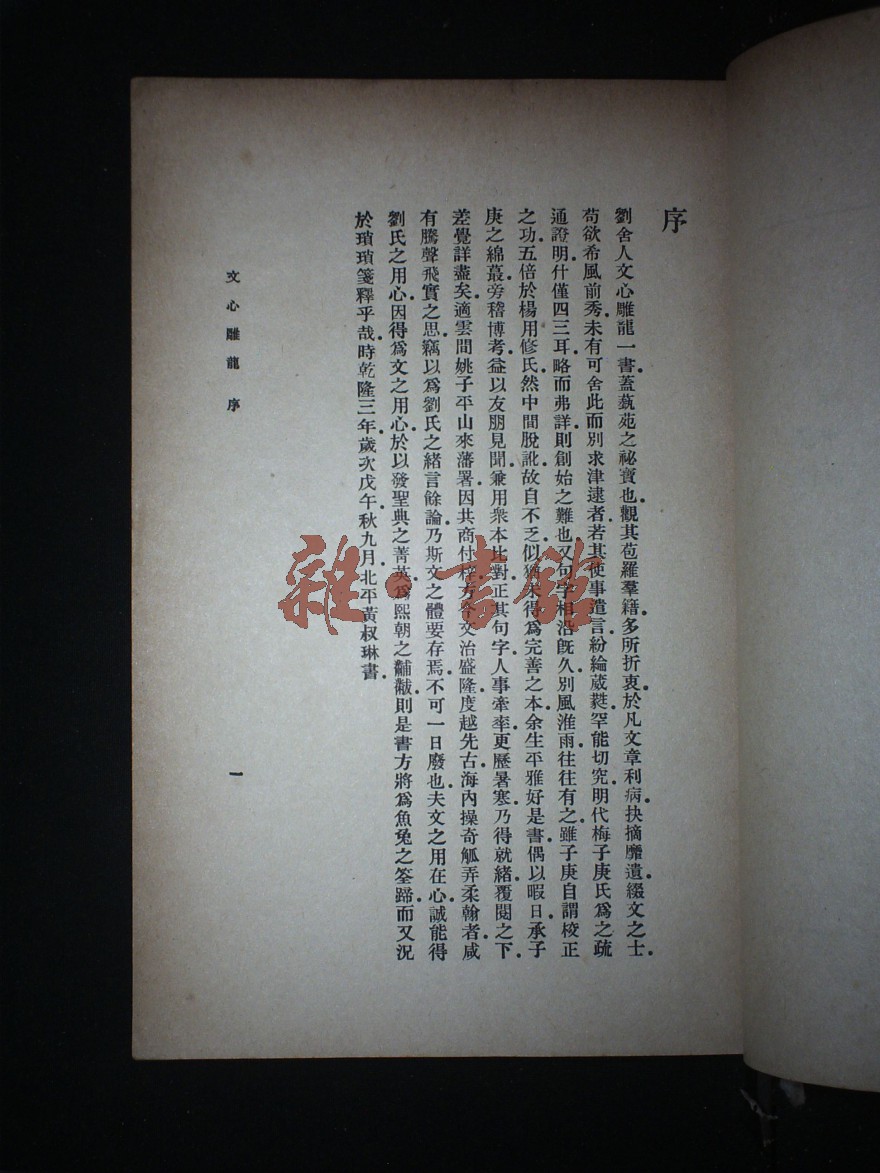 序
劉舍人文心雕龍一書。蓋蓺苑之祕寶也。觀其苞羅羣籍。多所折衷。於凡文章利病。抉摘靡遺。綴文之士。
苟欲希風前秀。未有可舍此而別求津逮者。若其使事遣言。紛綸葳蕤。罕能切究。明代梅子庚氏爲之疏
通證明。什僅四三耳。略而弗詳。則創始之難也。又句字相沿旣久。別風淮雨。往往有之。雖子庚自謂校正
之功。五倍於楊用修氏。然中間脫訛。故自不乏。似猶未得爲完善之本。余生平雅好是書。偶以暇日。承子
庚之綿蕞。旁稽博考。益以友朋見聞。兼用衆本比對。正其句字。人事牽率。更歷暑寒。乃得就緒。覆閱之下。
差覺詳盡矣。適雲間姚子平山來藩署。因共商付梓。方今文治盛隆。度越先古。海內操奇觚弄柔翰者。咸
有騰聲飛實之思。竊以爲劉氏之緒言餘論。乃斯文之體要存焉。不可一日廢也。夫文之用在心。誠能得
劉氏之用心。因得爲文之用心。於以發聖典之菁英。爲熙朝之黼黻。則是書方將爲魚兔之筌蹄。而又況
於瑣瑣箋釋乎哉。時乾隆三年。歲次戊午。秋九月。北平黃叔琳書。
文心雕龍 序
一
雜·書館